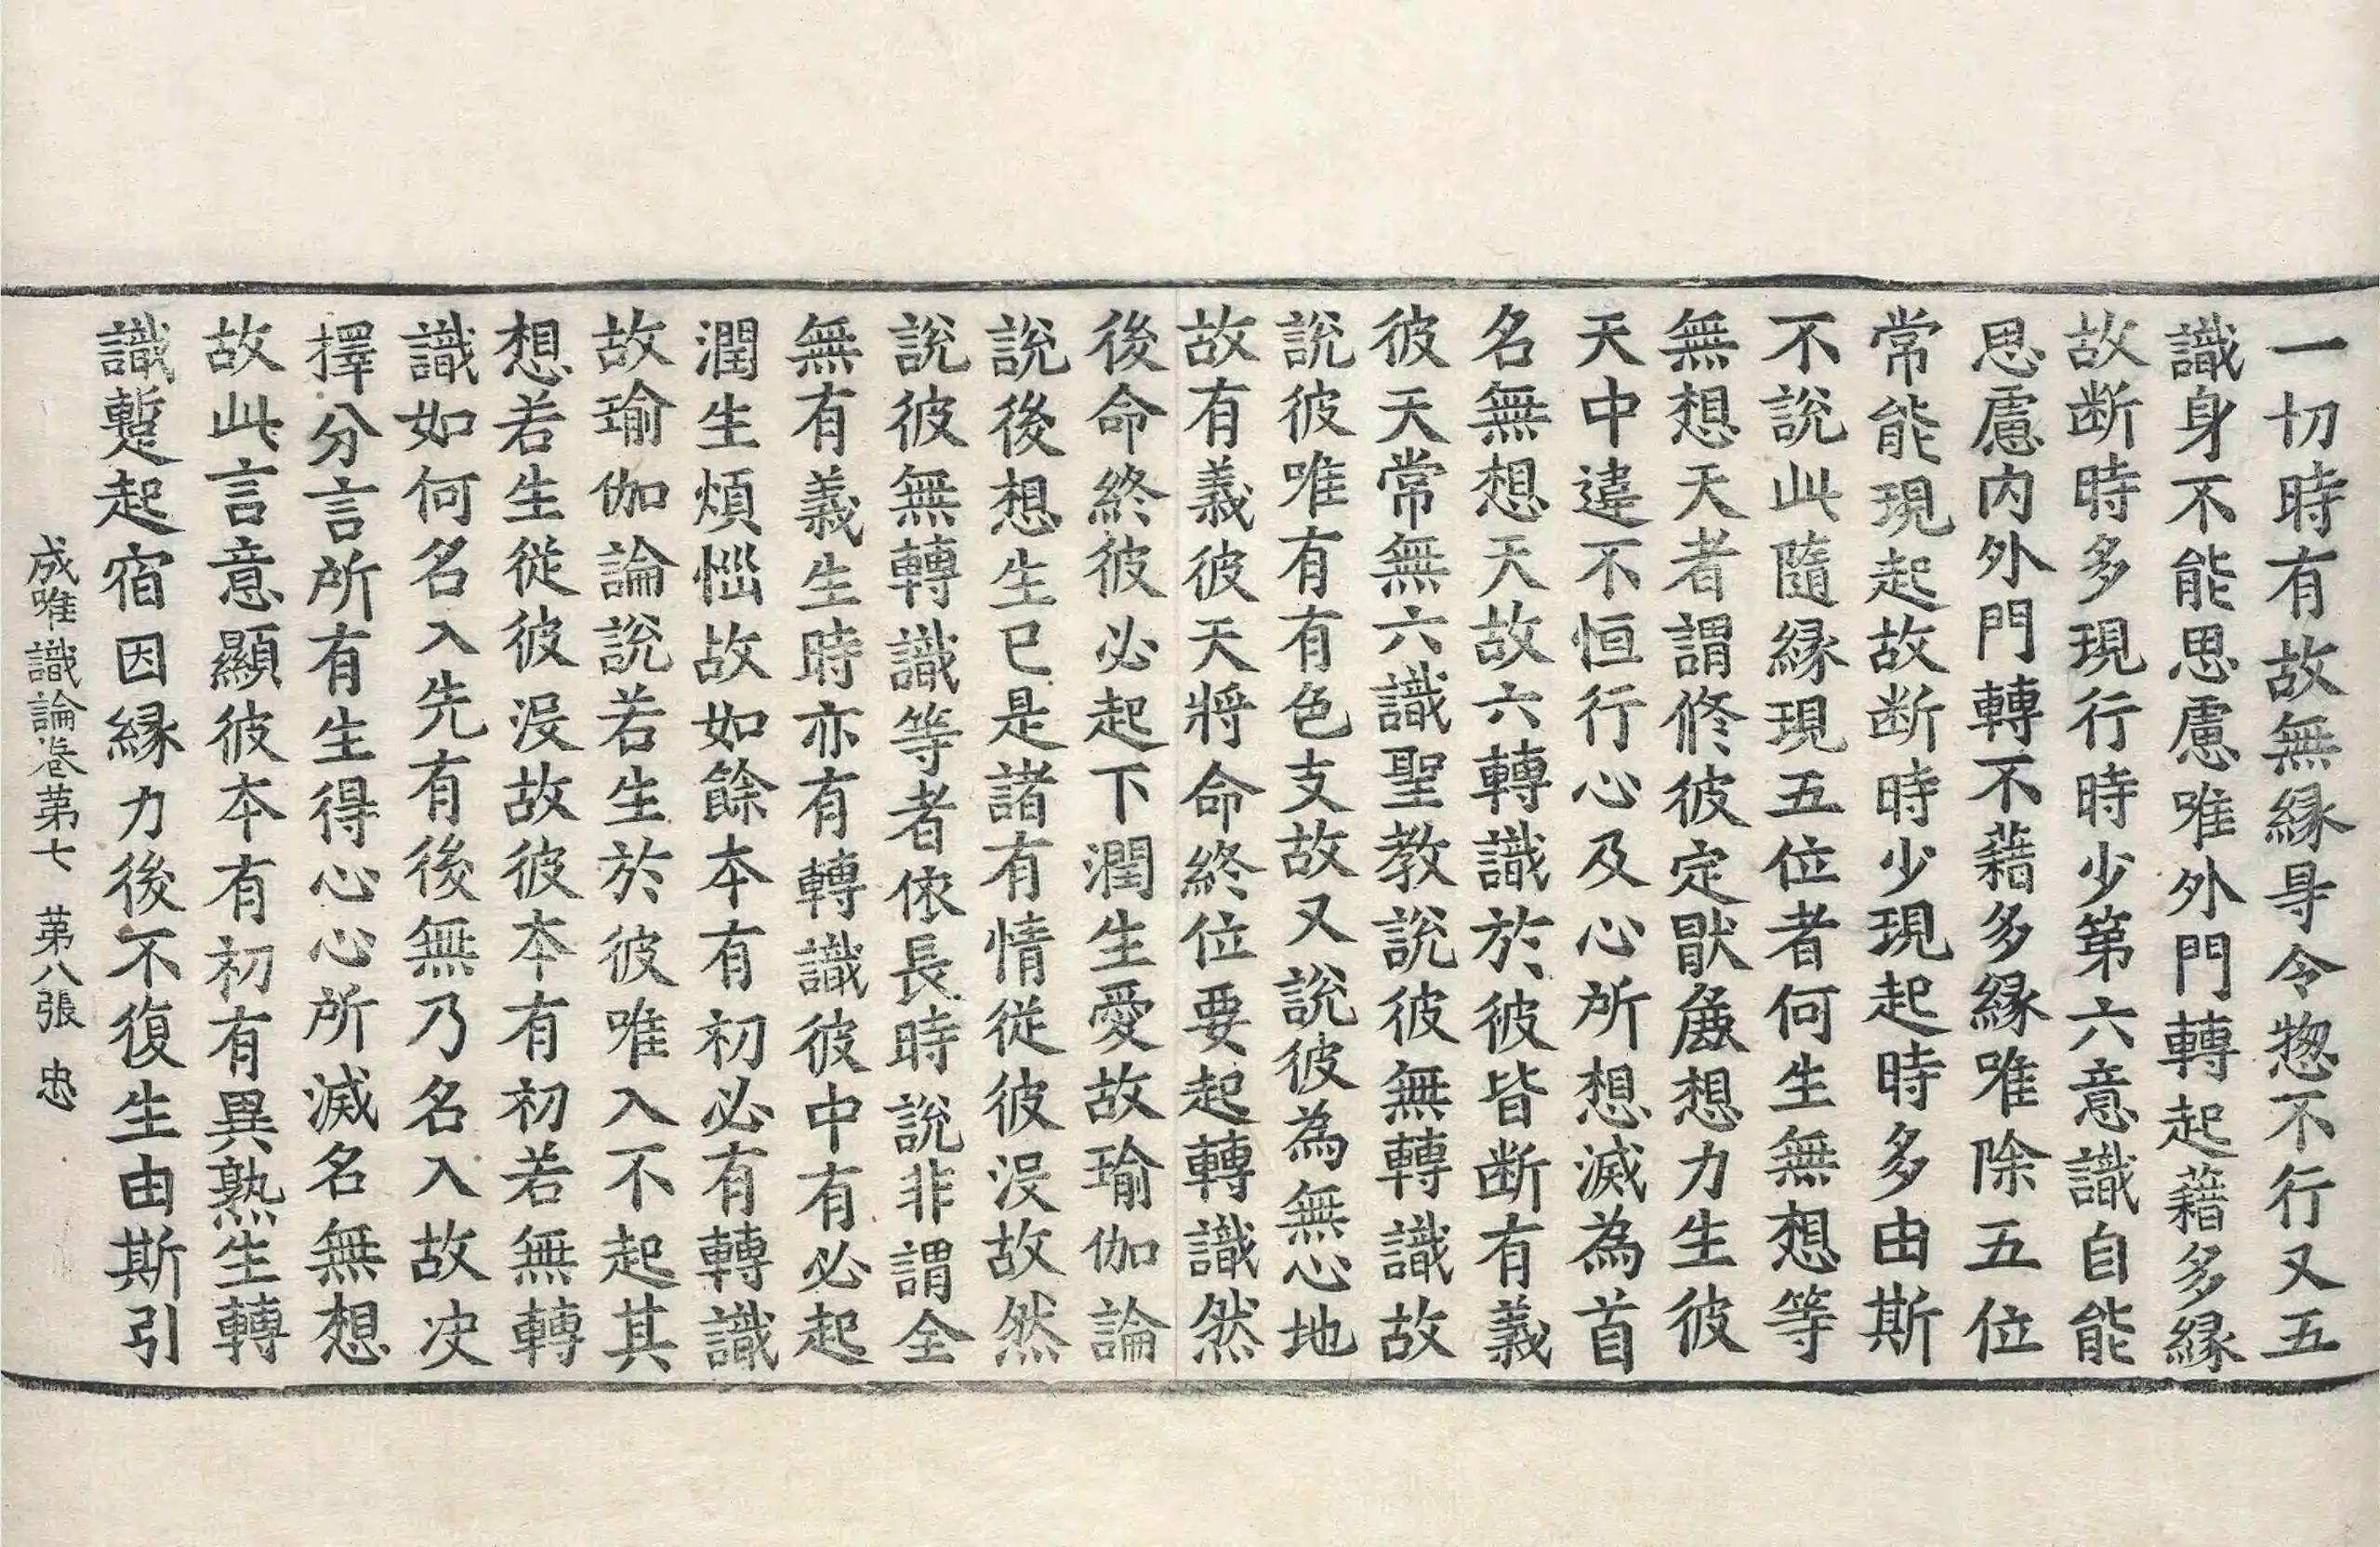 一切時有故無縁㝵令惣不行又五
識身不能思慮唯外門轉起藉多縁
故断時多現行時少第六意識自能
思慮内外門轉不藉多縁唯除五位
常能現起故断時少現起時多由斯
不說此隨縁現五位者何生無想等
無想天者謂修彼定猒麁想力生彼
天中違不恒行心及心所想滅為首
名無想天故六轉識於彼皆断有義
彼天常無六識聖教說彼無轉識故
說彼唯有有色支故又說彼為無心地
故有義彼天將命終位要起轉識然
後命終彼必起下潤生愛故瑜伽論
說後想生已是諸有情從彼沒故然
說彼無轉識等者依長時說非謂全
無有義生時亦有轉識彼中有必起
潤生煩惱故如餘本有初必有轉識
故瑜伽論說若生於彼唯入不起其
想若生從彼沒故彼本有初若無轉
識如何名入先有後無乃名入故决
擇分言所有生得心心所滅名無想
故此言意顯彼本有初有異熟生轉
識蹔起宿因縁力後不復生由斯引
成唯識論卷第七 第八張 忠